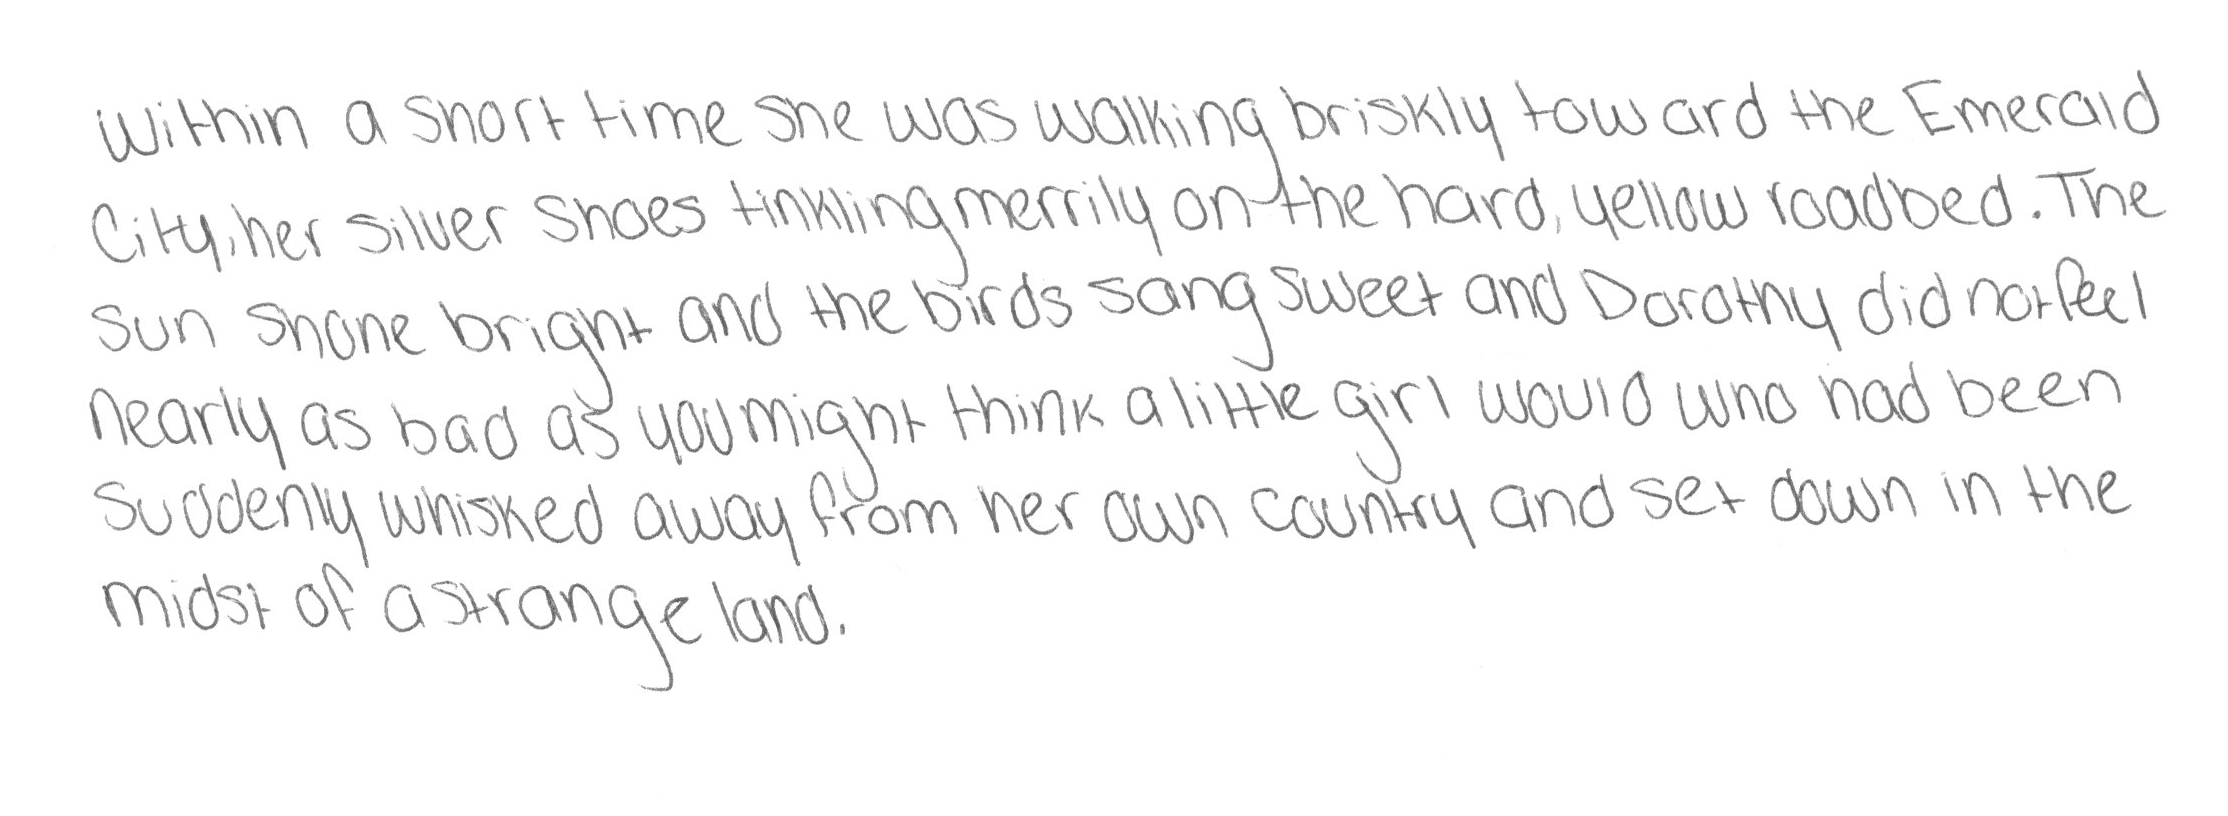 Within a short time she was walking briskly toward the Emerald
City, her silver Shoes tinkling merrily on the hard, yellow roadbed. The
sun shone bright and the birds sang sweet and Dorothy did not feel
nearly as bad as you might think a little girl would who had been
suddenly whisked away from her own country and set down in the
midst of a strange land.